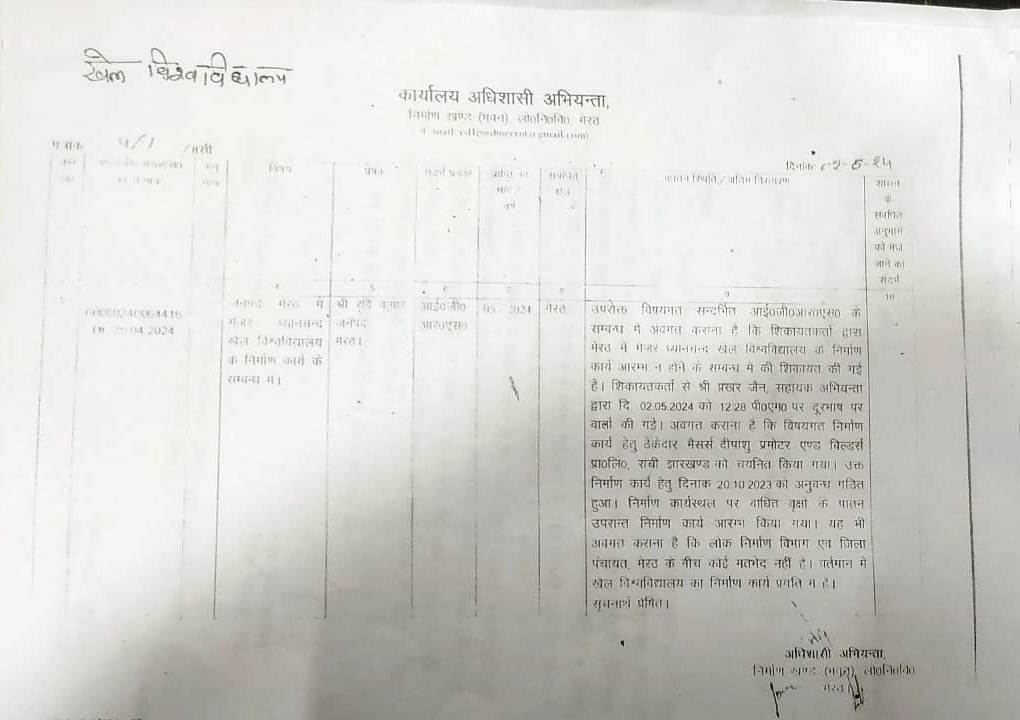 खेल विश्वविद्यालय
कार्यालय अधिशासी अभियन्ता,
निर्माण खण्ड (भवन) लो०नि०वि०, मेरठ
पत्रांक
दिनांक
विषय
प्राप्ति का माह / वर्ष
संबंधित क्षेत्र
अद्यतन स्थिति / अंतिम निस्तारण
शासन
के
संबंधित
अनुभाग
को भेजे
जाने का
संदर्भ
9
10
60000240064416
04.2024
जनपद मेरठ में
मेजर ध्यानचन्द
खेल विश्वविद्यालय
के निर्माण कार्य के
सम्बन्ध में।
श्री
कुमार
जनपद
मेरठ।
आई०जी०
आर०एस०
05 2024
मेरठ
उपरोक्त विषयगत सन्दर्भित आई०जी०आर०एस० के
सम्बन्ध में अवगत कराना है कि शिकायतकर्ता द्वारा
मेरठ में मेजर ध्यानचन्द खेल विश्वविद्यालय के निर्माण
कार्य आरम्भ न होने के सम्बन्ध में की शिकायत की गई
है। शिकायतकर्ता से श्री प्रखर जैन, सहायक अभियन्ता
द्वारा दि० 02.05.2024 को 12:28 पी०एम० पर दूरभाष पर
वार्ता की गई। अवगत कराना है कि विषयगत निर्माण
कार्य हेतु ठेकेदार मैसर्स दीपांशु प्रमोटर एण्ड बिल्डर्स
प्रा०लि०, रांची झारखण्ड को चयनित किया गया। उक्त
निर्माण कार्य हेतु दिनांक 20.10.2023 को अनुबन्ध गठित
हुआ। निर्माण कार्यस्थल पर बाधित वृक्षों के पातन
उपरान्त निर्माण कार्य आरम्भ किया गया। यह भी
अवगत कराना है कि लोक निर्माण विभाग एवं जिला
पंचायत, मेरठ के बीच कोई मतभेद नहीं है। वर्तमान में
खेल विश्वविद्यालय का निर्माण कार्य प्रगति में है।
सूचनार्थ प्रेषित।
अधिशासी अभियन्ता,
निर्माण खण्ड (भवन) लो०नि०वि०
मेरठ